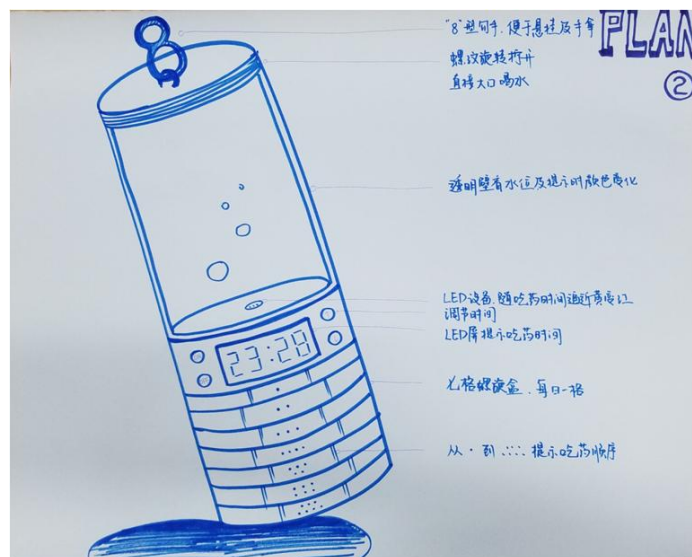 PLAN
②
"8"型勾手,便于悬挂及手拿
螺纹旋转拧开
直接大口喝水
透明壁看水位及提示时颜色变化
LED设备,随吃药时间逼近黄变红
调节时间
LED屏提示吃药时间
23:28
七格螺旋盒,每日一格
从·到::::提示吃药顺序